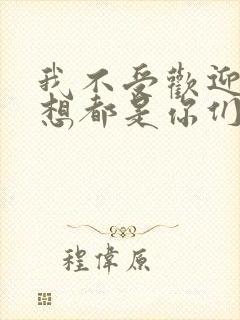 我不受歡迎
想都是你們
程偉原